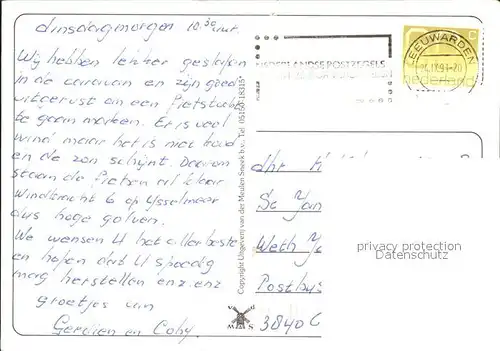 dinsdagmorgen 10.30 uur.
Wij hebben lekker geslapen
in de caravan en zijn goed
uitgerust om een fietstocht
te gaan maken. Er is veel
wind maar het is niet koud
en de zon schijnt. Daarom
staan de fietsen al klaar
Windkracht 6 op IJsselmeer
dus hoge golven.
We wensen U het allerbeste
en hopen dat U spoedig
mag herstellen enz. enz
groetjes van
Gerdien en Coby.
Copyright Uitgeverij van der Meulen Sneek b.v., Tel. 05150-18315*
NEDERLANDSE POSTZEGELS
LEEUWARDEN
nederland
dhr
Sc Jan
Weth Ja
Postbus
3840
privacy protection
Datenschutz